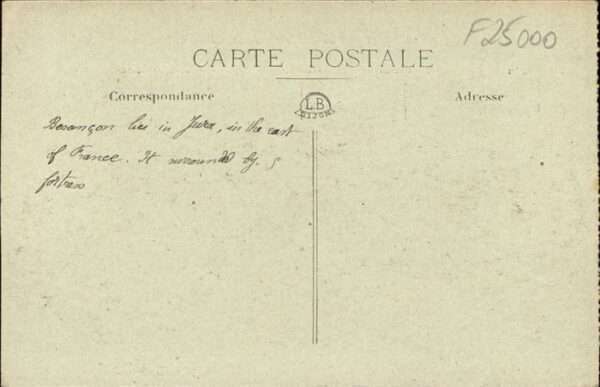 F25000
CARTE POSTALE
Correspondance
LB
DIJON
Adresse
Besançon lies in Jura, in the east
of France. It surrounded by 5
fortress